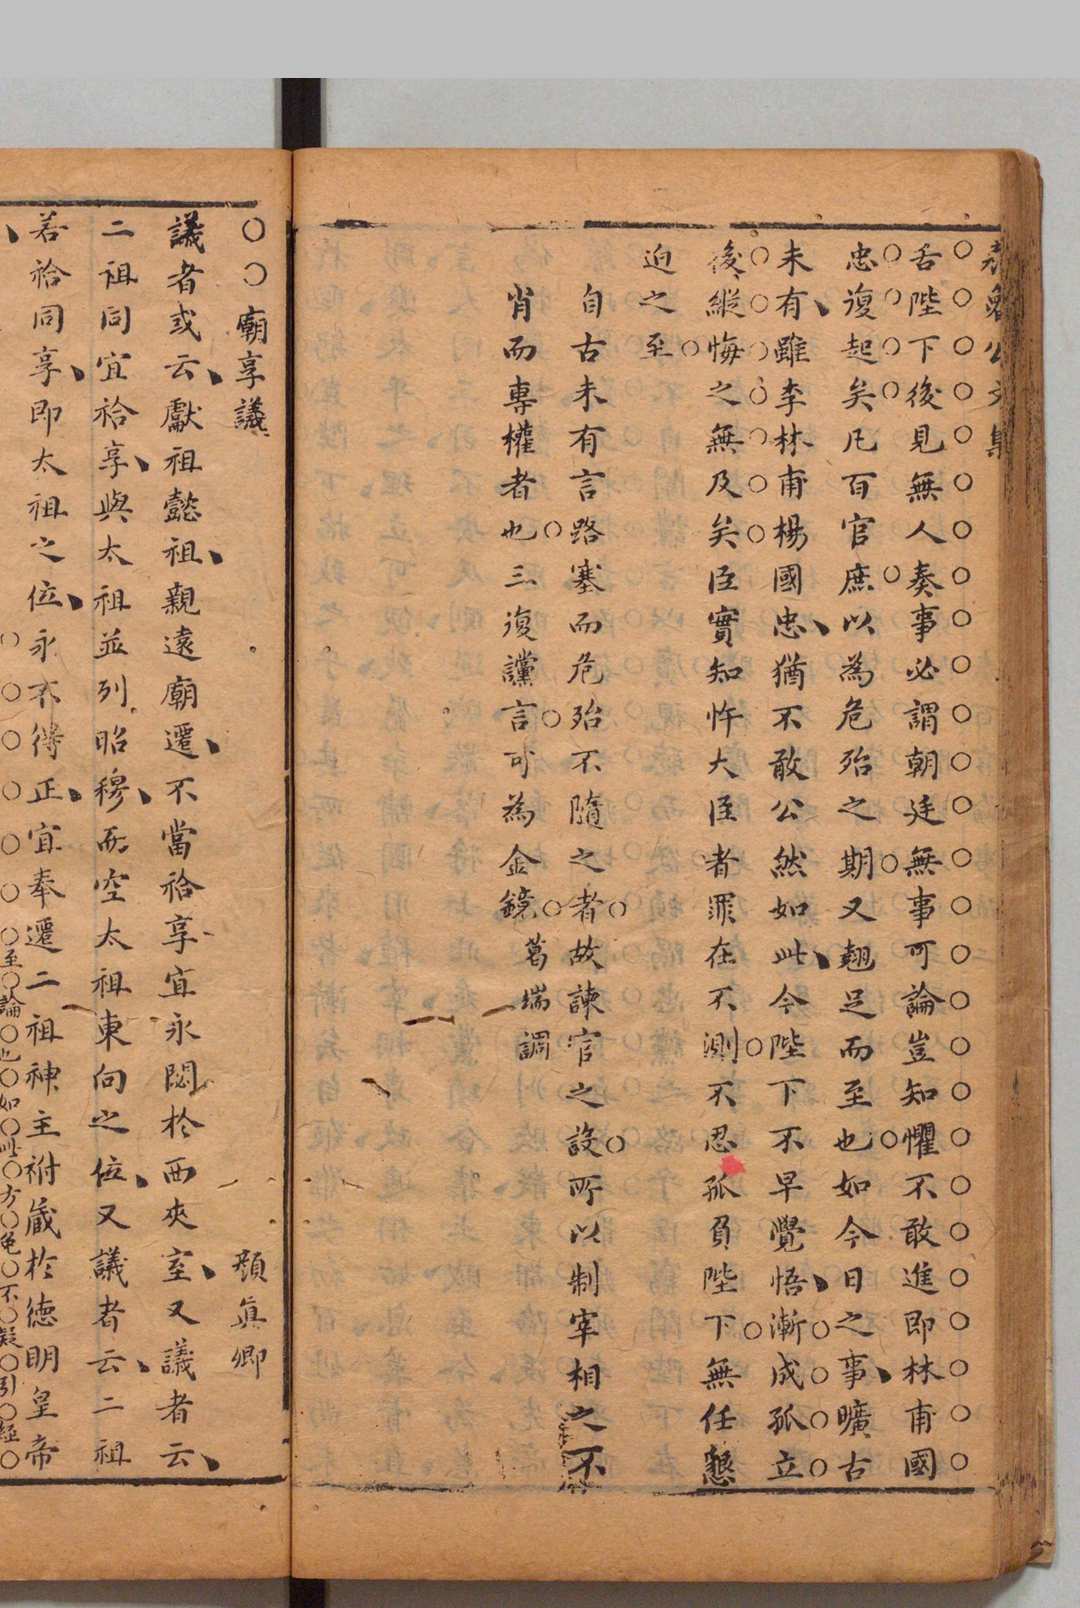 舌陛下後見無人奏事必謂朝廷無事可論豈知懼不敢進即林甫國
忠復起矣凡百官庶以為危殆之期又翹足而至也如今日之事曠古
未有雖李林甫楊國忠猶不敢公然如此今陛下不早覺悟漸成孤立
後縱悔之無及矣臣實知忤大臣者罪在不測不忍孤負陛下無任懇
迫之至
自古未有言路塞而危殆不隨之者故諫官之設所以制宰相之不
肖而專權者也三復讜言可為金鏡 葛端調
廟享議 顔眞卿
議者或云獻祖懿祖親遠廟遷不當祫享宜永閟於西夾室又議者云
二祖同宜祫享與太祖並列昭穆而空太祖東向之位又議者云二祖
若祫同享即太祖之位永不得正宜奉遷二祖神主祔藏於德明皇帝